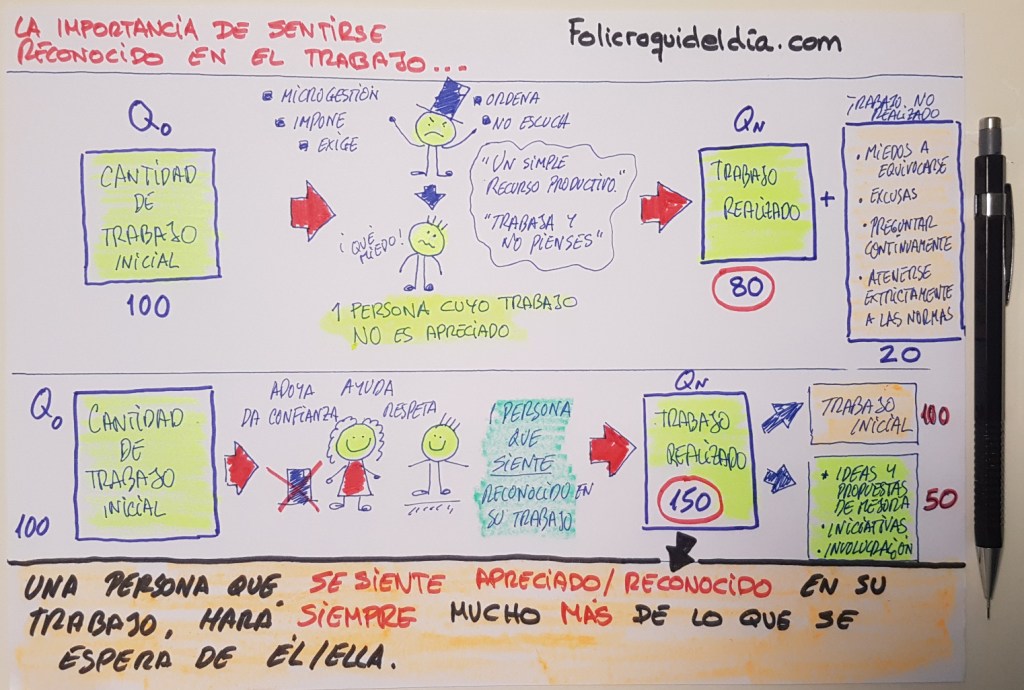 LA IMPORTANCIA DE SENTIRSE
RECONOCIDO EN EL TRABAJO...
Folicroquideldia.com
Qo
CANTIDAD
DE
TRABAJO
INICIAL
100
MICROGESTIÓN
IMPONE
EXIGE
ORDENA
NO ESCUCHA
"UN SIMPLE
RECURSO PRODUCTIVO."
"TRABAJA Y
NO PIENSES"
¡QUÉ
MIEDO!
1 PERSONA CUYO TRABAJO
NO ES APRECIADO
QN
TRABAJO
REALIZADO
80
+
TRABAJO NO
REALIZADO
• MIEDOS A
EQUIVOCARSE
• EXCUSAS
• PREGUNTAR
CONTINUAMENTE
• ATENERSE
EXTRICTAMENTE
A LAS NORMAS
20
Qo
CANTIDAD
DE
TRABAJO
INICIAL
100
APOYA AYUDA
DA CONFIANZA RESPETA
1 PERSONA
QUE
SIENTE
RECONOCIDO EN
SU TRABAJO
QN
TRABAJO
REALIZADO
150
TRABAJO
INICIAL
100
+ IDEAS Y
PROPUESTAS
DE MEJORA
• INICIATIVAS
• INVOLUCRACIÓN
50
UNA PERSONA QUE SE SIENTE APRECIADO/RECONOCIDO EN SU
TRABAJO, HARÁ SIEMPRE MUCHO MÁS DE LO QUE SE
ESPERA DE ÉL/ELLA.